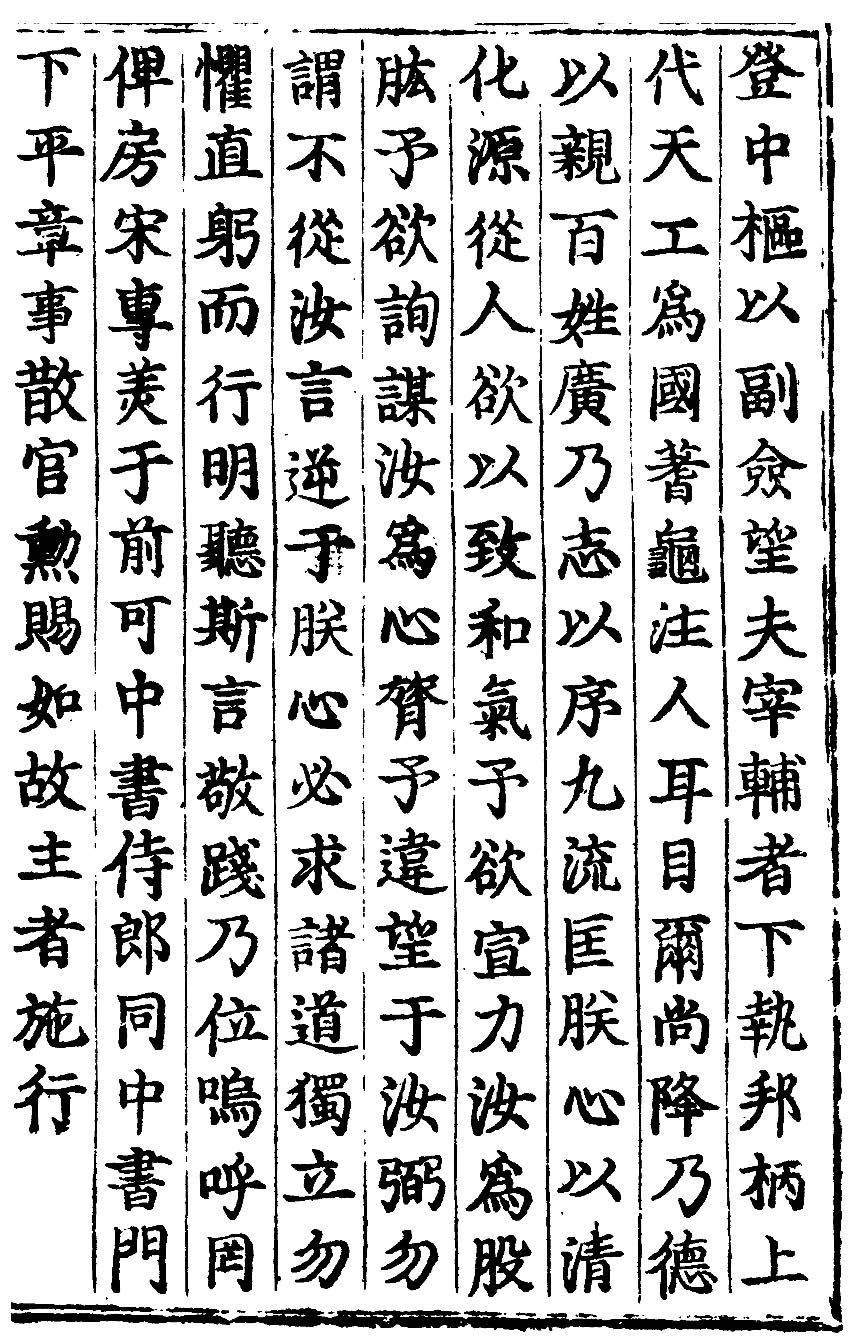 登中樞以副僉望夫宰輔者下執邦柄上
代天工爲國蓍龜注人耳目爾尚降乃德
以親百姓廣乃志以序九流匡朕心以清
化源從人欲以致和氣予欲宣力汝爲股
肱予欲詢謀汝爲心膂予違望于汝弼勿
謂不從汝言逆于朕心必求諸道獨立勿
懼直躬而行明聽斯言敬踐乃位嗚呼罔
俾房宋專美于前可中書侍郎同中書門
下平章事散官勳賜如故主者施行